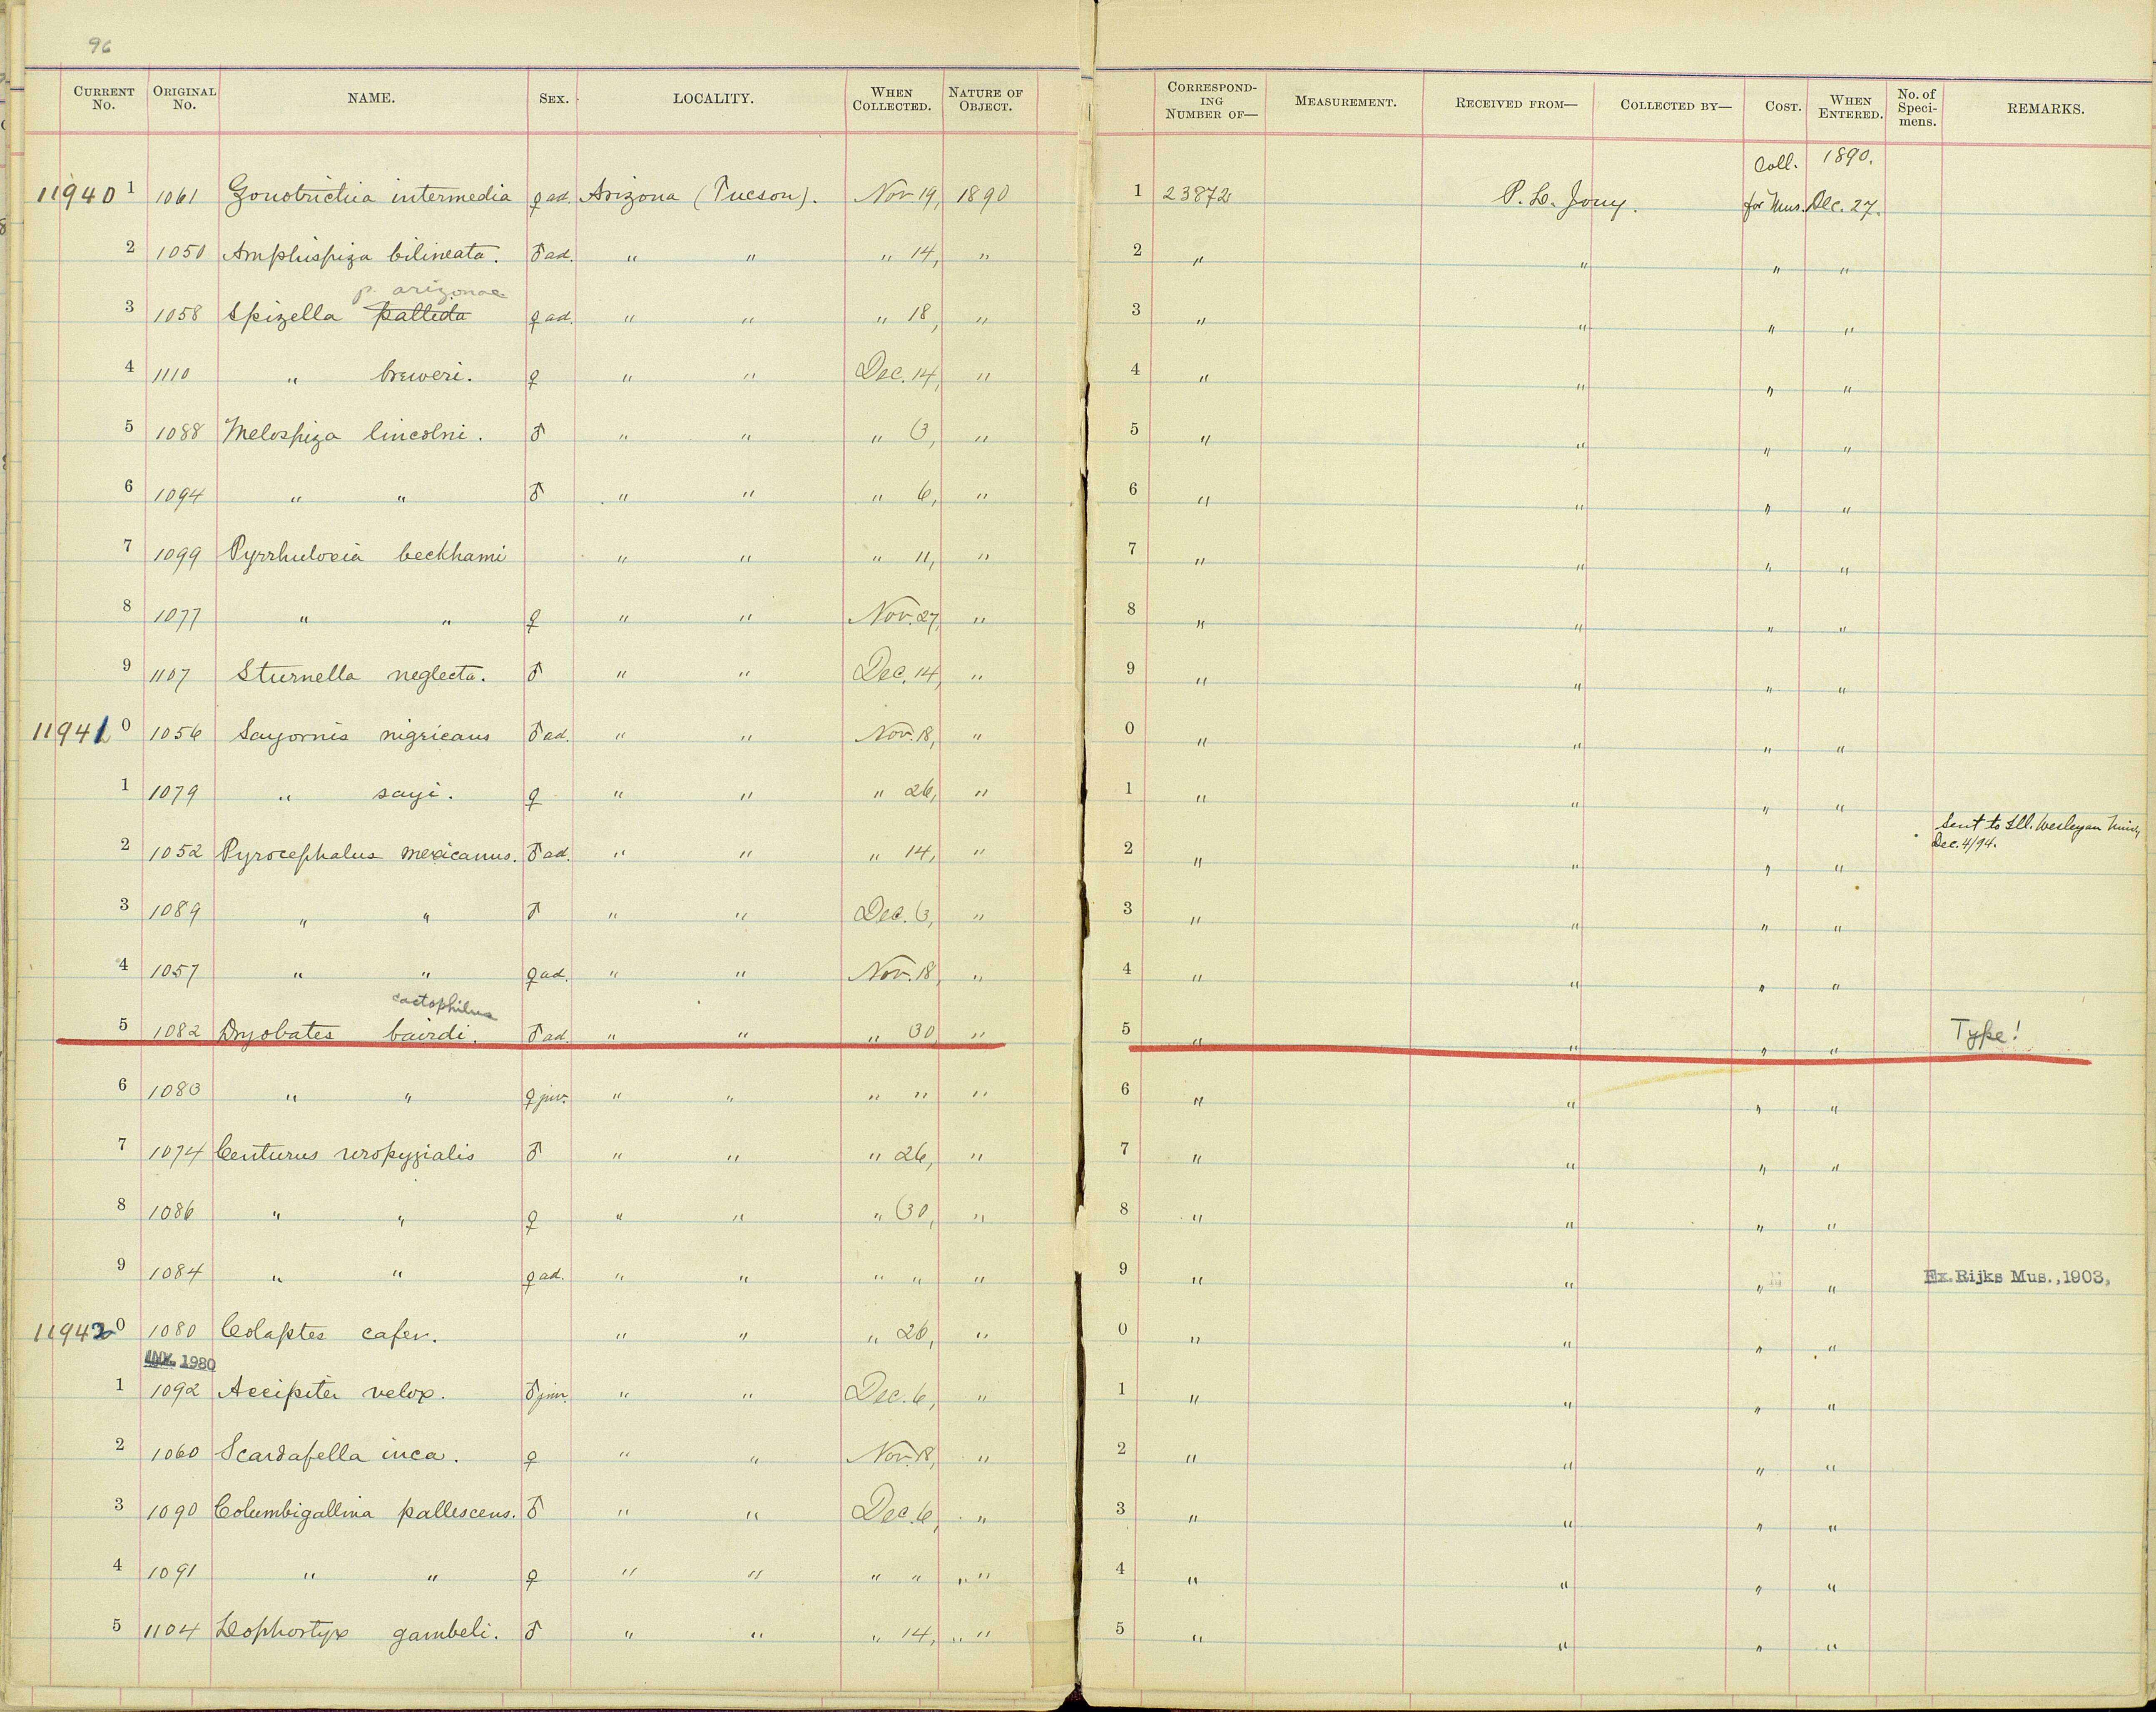 96
CURRENT No. ORIGINAL No. NAME. SEX. LOCALITY. WHEN COLLECTED. NATURE OF OBJECT. CORRESPONDING NUMBER OF— MEASUREMENT. RECEIVED FROM— COLLECTED BY— COST. WHEN ENTERED. No. of Specimens. REMARKS.
Coll. 1890.
11940 1 1061 Zonotrichia intermedia ♀ ad. Arizona (Tucson). Nov 19, 1890 1 23872 P. L. Jouy. for Mus. Dec. 27.
2 1050 Amphispiza bilineata. ♂ ad. " " " 14, " 2 " " " "
p. arizonae
3 1058 Spizella pallida ♀ ad. " " " 18, " 3 " " " "
4 1110 " breweri. ♀ " " Dec. 14, " 4 " " " "
5 1088 Melospiza lincolni. ♂ " " " 3, " 5 " " " "
6 1094 " " ♂ " " " 6, " 6 " " " "
7 1099 Pyrrhuloxia beckhami " " " 11, " 7 " " " "
8 1077 " " ♀ " " Nov. 27, " 8 " " " "
9 1107 Sturnella neglecta. ♂ " " Dec. 14, " 9 " " " "
11941 0 1056 Sayornis nigricans ♂ ad. " " Nov. 18, " 0 " " " "
1 1079 " sayi. ♀ " " " 26, " 1 " " " "
Sent to Ill. Wesleyan Univ
2 1052 Pyrocephalus mexicanus. ♂ ad. " " " 14, " 2 " " " " Dec. 4/94.
3 1089 " " ♂ " " Dec. 3, " 3 " " " "
4 1057 " " ♀ ad. " " Nov. 18, " 4 " " " "
cactophilus
5 1082 Dryobates bairdi. ♂ ad. " " " 30, " 5 " " " " Type!
6 1083 " " ♀ juv. " " " " " 6 " " " "
7 1074 Centurus uropygialis ♂ " " " 26, " 7 " " " "
8 1086 " " ♀ " " " 30, " 8 " " " "
9 1084 " " ♀ ad. " " " " " 9 " " " " Ex. Rijks Mus., 1903,
11942 0 1080 Colaptes cafer. " " " 26, " 0 " " " "
INV. 1980
1 1092 Accipiter velox. ♂ juv. " " Dec. 6, " 1 " " " "
2 1060 Scardafella inca. ♀ " " Nov. 18, " 2 " " " "
3 1090 Columbigallina pallescens. ♂ " " Dec. 6, " 3 " " " "
4 1091 " " ♀ " " " " " 4 " " " "
5 1104 Lophortyx gambeli. ♂ " " " 14, " 5 " " " "